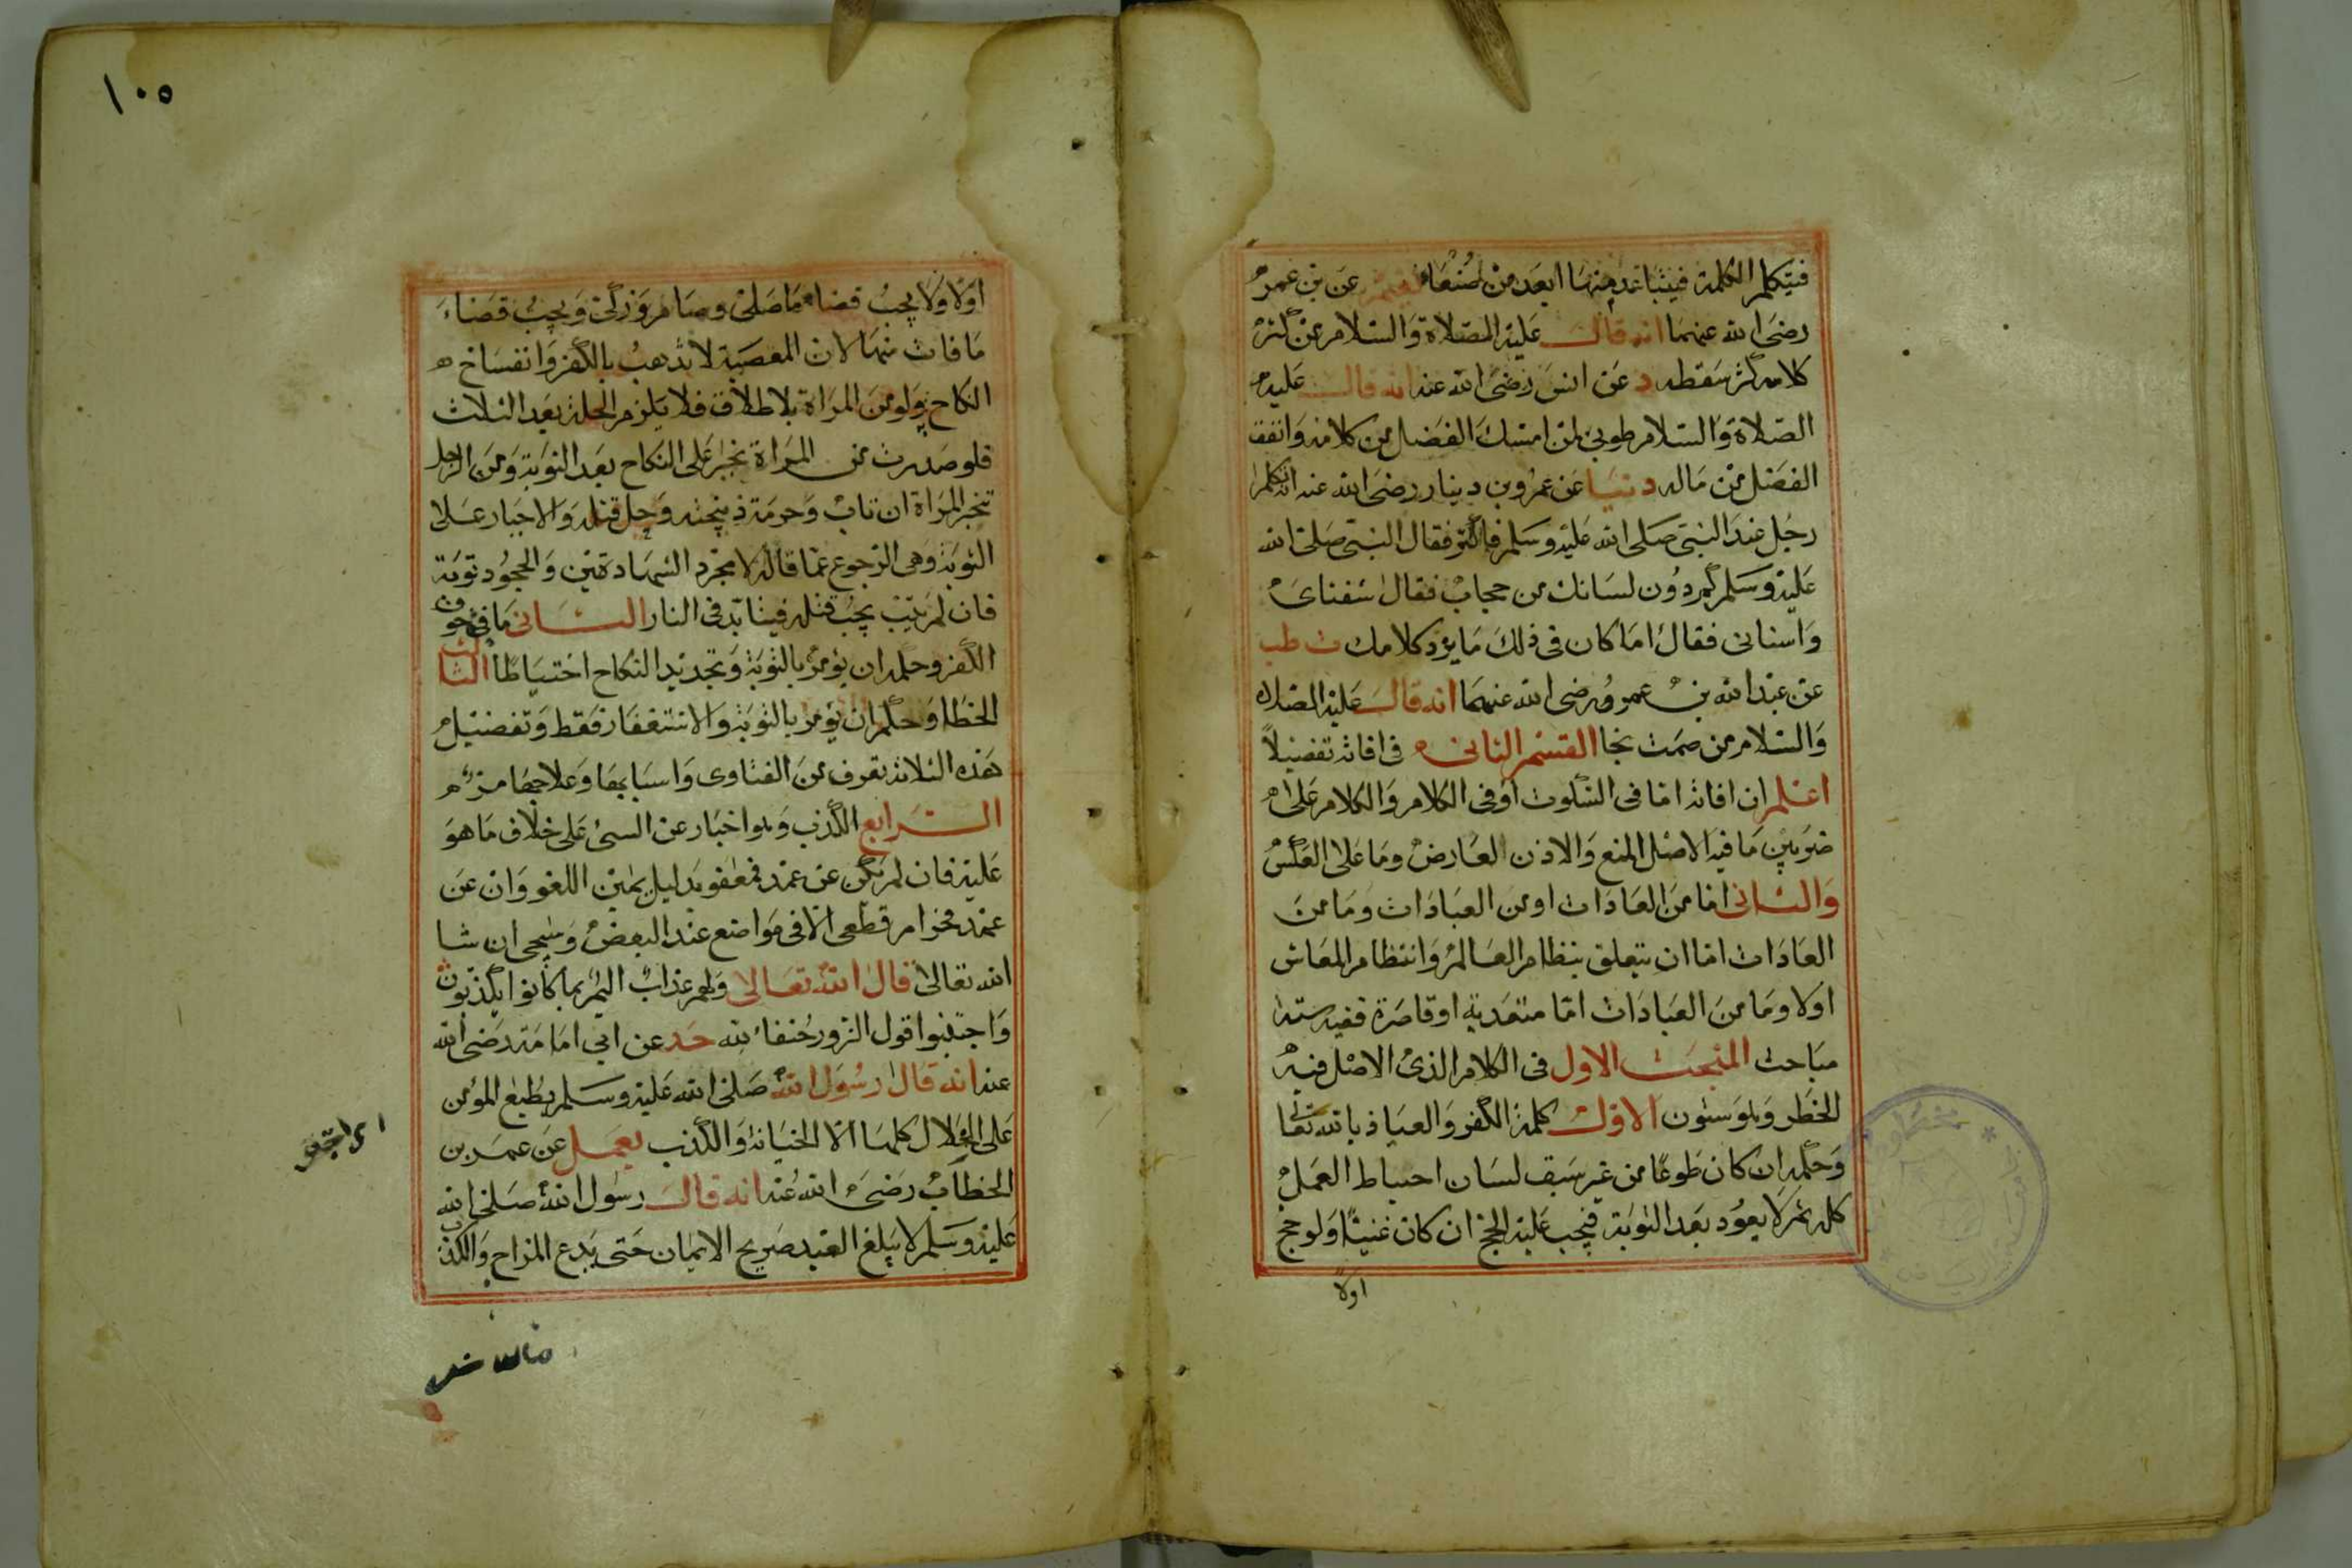 فيتكلم الكلمة فيتباعد منها ابعد من صنعاء عن بن عمر
رضى الله عنهما انه قال عليه الصلاة والسلام من كثر
كلامه كثر سقطه د عن انس رضى الله عنه انه قال عليه
الصلاة والسلام طوبى لمن امسك الفضل من كلامه وانفق
الفضل من ماله دنيا عن عمرو بن دينار رضى الله عنه انه تكلم
رجل عند النبى صلى الله عليه وسلم فاكثر فقال النبى صلى الله
عليه وسلم كم دون لسانك من حجاب فقال شفتاى
واسنانى فقال اما كان فى ذلك ما يرد كلامك ت طب
عن عبد الله بن عمرو رضى الله عنهما انه قال عليه الصلاه
والسلام من صمت نجا القسم الثانى فى افاته تفصيلاً
اعلم ان افاته اما فى السكوت او فى الكلام والكلام على
ضربين ما فيه الاصل المنع والاذن العارض وما على العكس
والثانى اما من العادات او من العبادات وما من
العادات اما ان يتعلق بنظام العالم وانتظام المعاش
اولا وما من العبادات اما متعدية او قاصرة ففيه ستة
مباحث المبحث الاول فى الكلام الذى الاصل فيه
الخطر وهو ستون الاول كلمة الكفر والعياذ بالله تعا
وحكمه ان كان طوعًا من غير سبق لسان احباط العمل
كله ثم لا يعود بعد التوبة فيجب عليه الحج ان كان غنيًا ولو حج
اولا
١٠٥
اولا ولا يجب قضاء ما صلى وصام وزكى ويجب قضاء
ما فات منها لان المعصية لا تذهب بالكفر وانفساخ
النكاح ولو من المراة بلا طلاق فلا يلزم الحلة بعد الثلاث
فلو صدرت من المراة تجبر على النكاح بعد التوبة ومن الرجل
تخير المراة ان تاب وحرمة ذبيحته وحل قتله والاجبار على
التوبة وهى الرجوع عما قاله لا مجرد الشهادتين والجحود توبة
فان لم يتب يجب قتله فيتابد فى النار الثانى ما فى خوف
الكفر وحكمه ان يؤمر بالتوبة وتجديد النكاح احتياطًا الثالث
الخطا وحكمه ان يؤمر بالتوبة والاستغفار فقط وتفصيل
هذه الثلاثة يعرف من الفتاوى واسبابها وعلاجها مر
الرابع الكذب وهو اخبار عن الشئ على خلاف ما هو
عليه فان لم يكن عن عمد فمعفو بدليل يمين اللغو وان عن
عمد فحرام قطعى الا فى مواضع عند البعض وسيجى ان شا
الله تعالى قال الله تعالى ولهم عذاب اليم بما كانوا يكذبون
واجتنبوا قول الزور حنفاء لله حد عن ابى امامة رضى الله
عنه انه قال رسول الله صلى الله عليه وسلم يطبع المؤمن
على الخلال كلها الا الخيانة والكذب يعمل عن عمر بن
الخطاب رضى الله عنه انه قال رسول الله صلى الله
عليه وسلم لا يبلغ العبد صريح الايمان حتى يدع المزاح والكذب